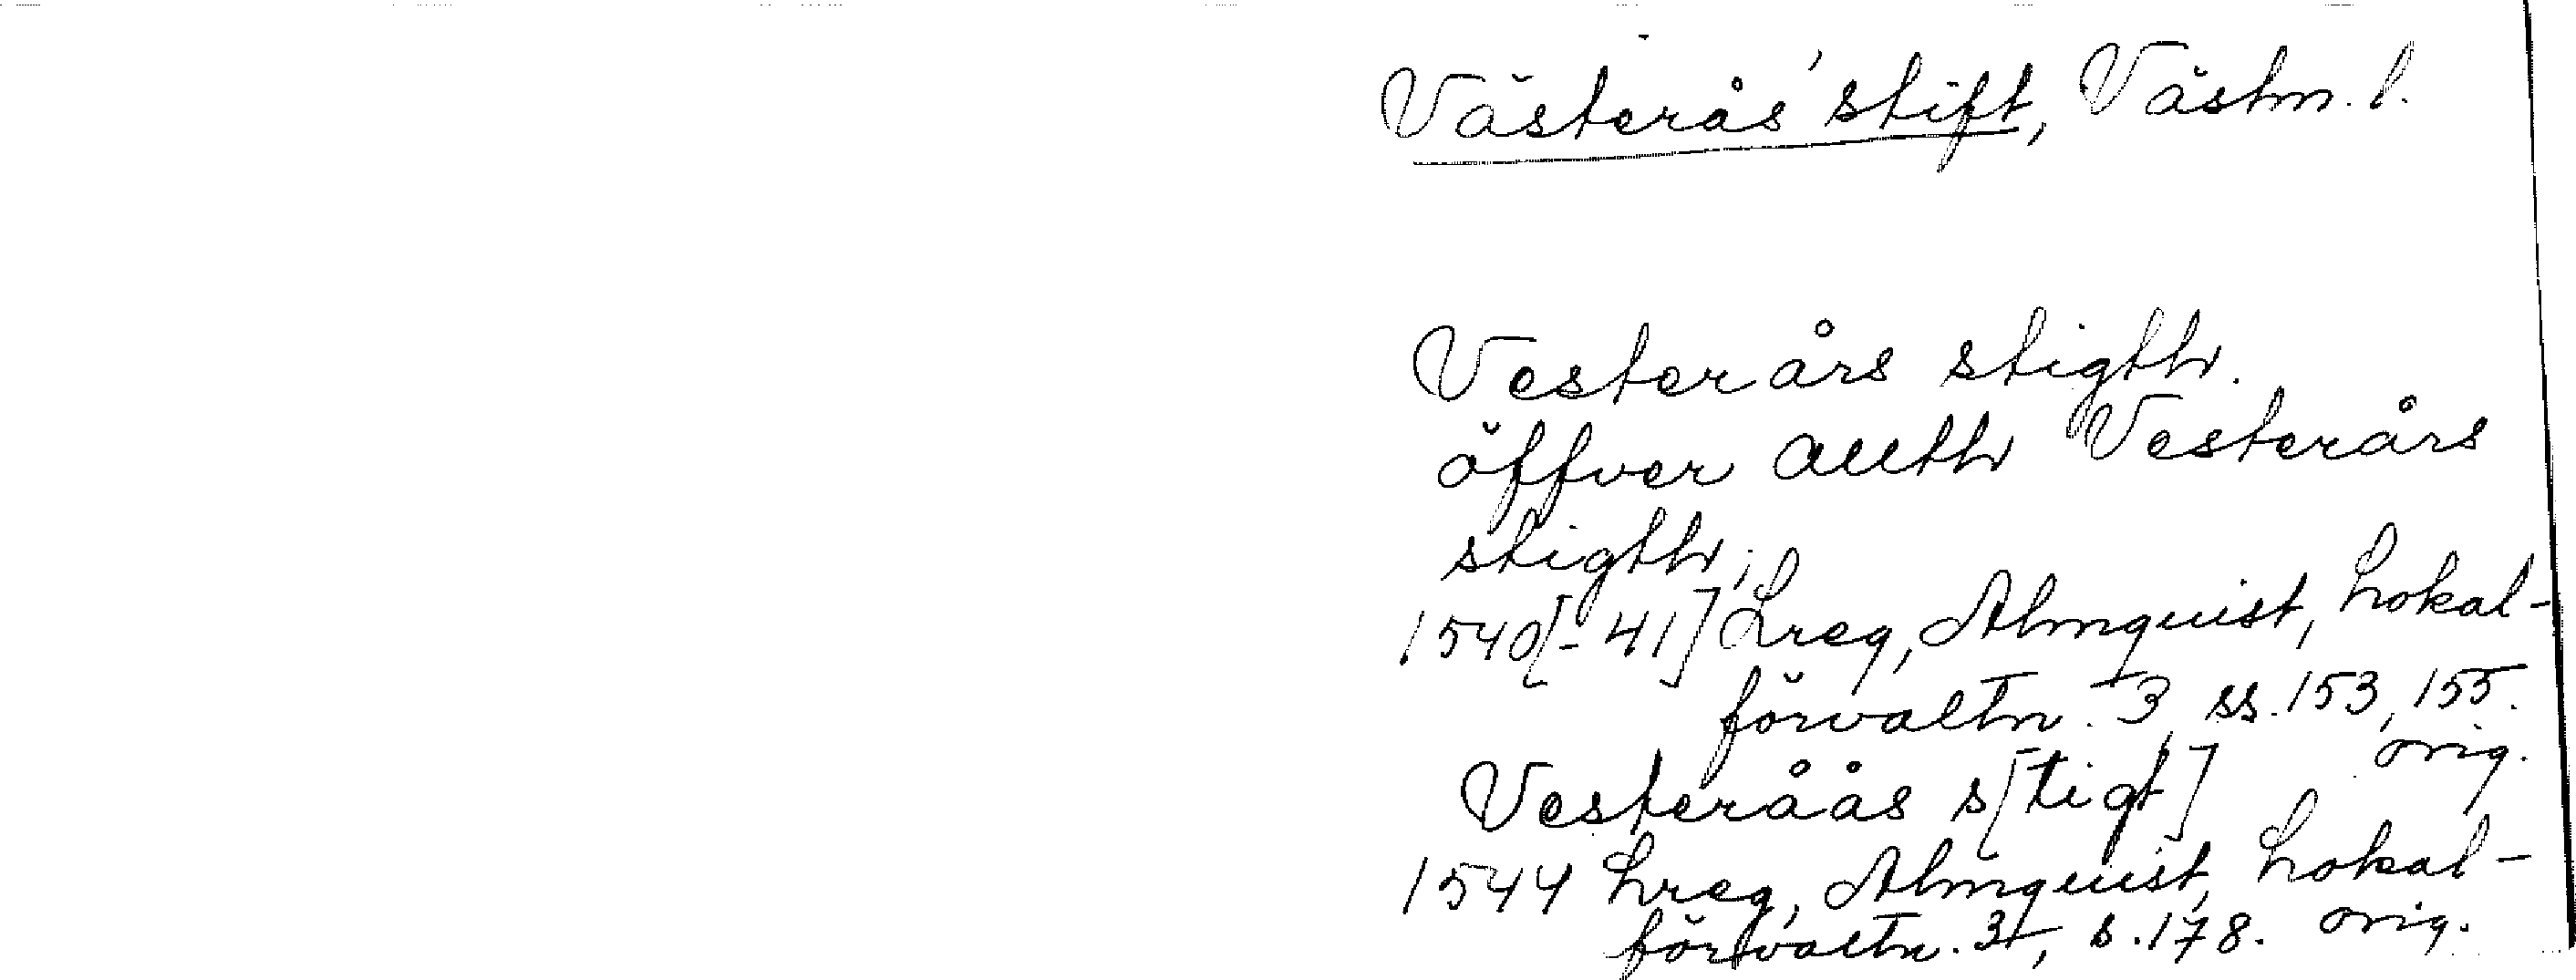 Västerås stift, Västm. l.
Vesterårs stigth.
öffver allth Vesterårs
stigth;
1540[-41] Lreg, Almquist, Lokal-
förvaltn. 3, ss. 153, 155.
orig.
Vesteråås s[tigt]
1544 Lreg, Almquist, Lokal-
förvaltn. 3, s. 178. orig.